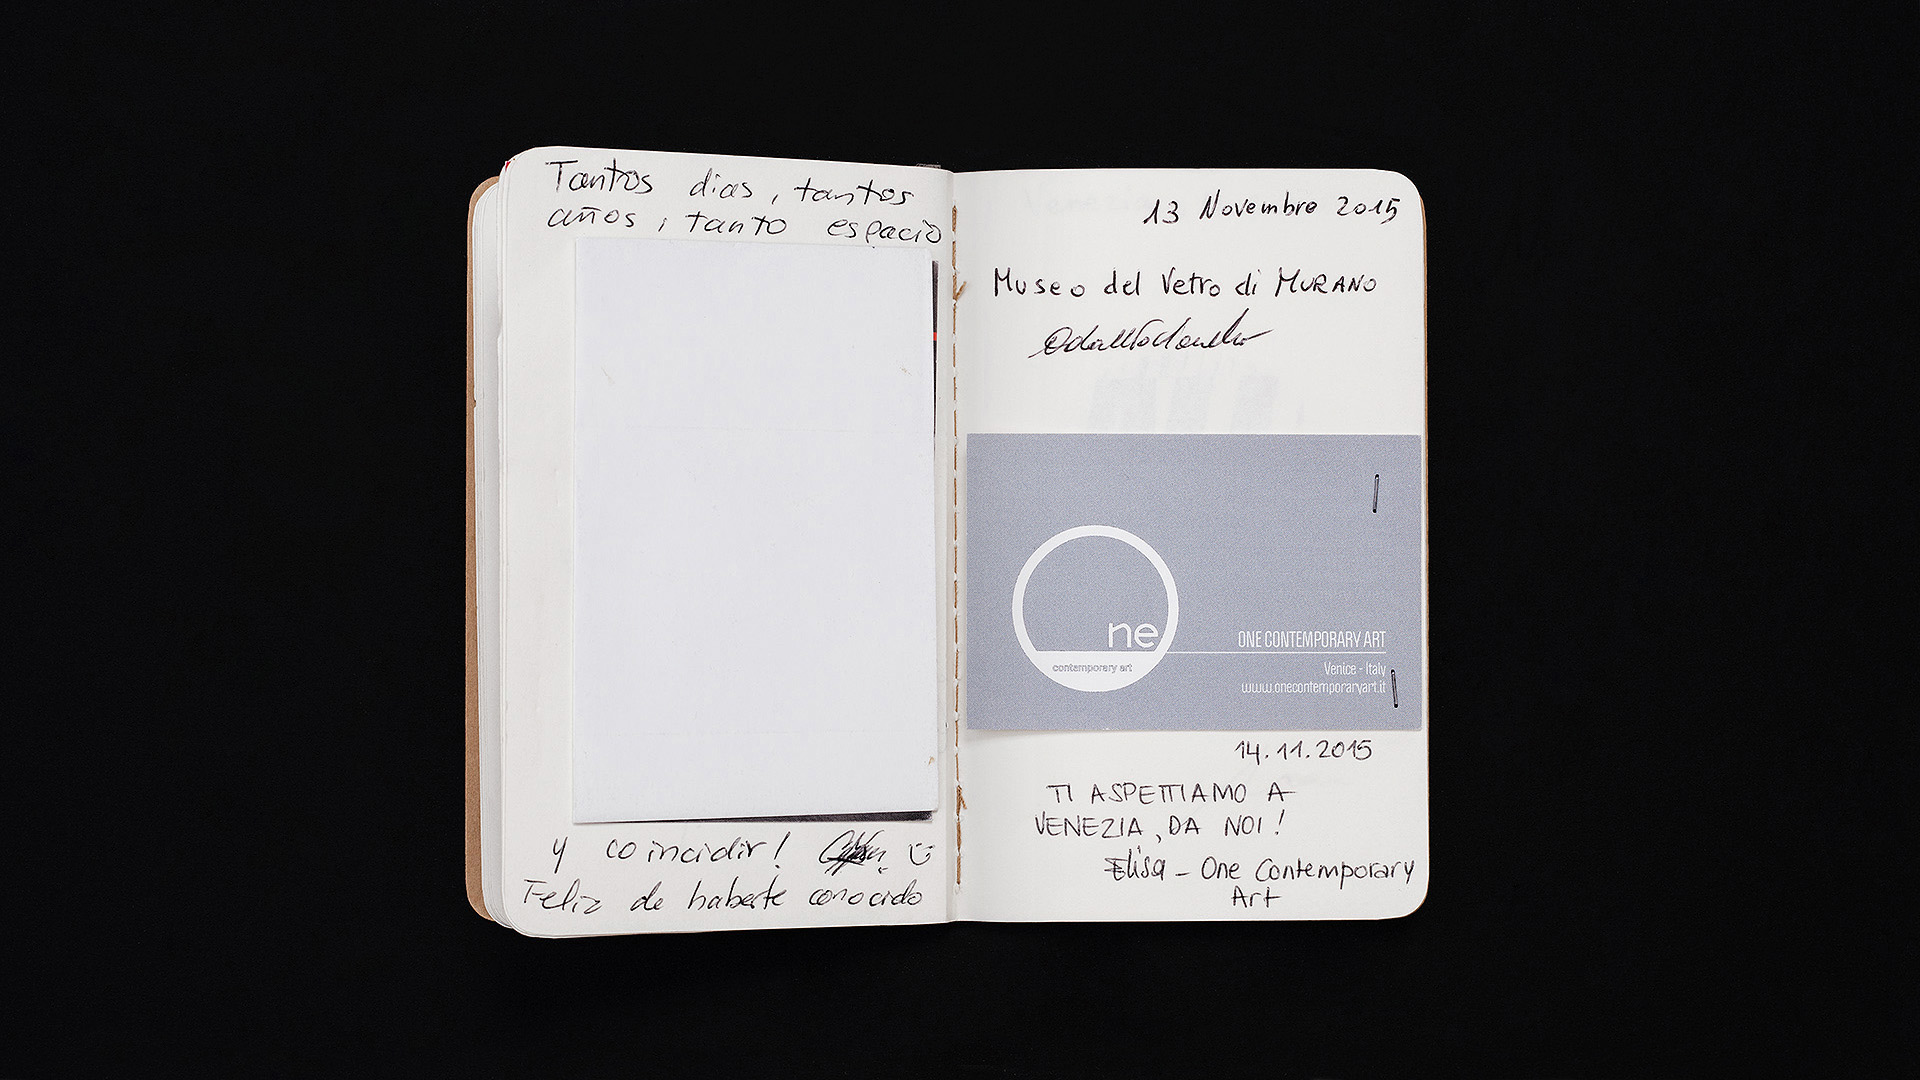 Tantos dias, tantos
años, tanto espacio
y coincidir!
Feliz de haberte conocido
13 Novembre 2015
Museo del Vetro di MURANO
ne
contemporary art
ONE CONTEMPORARY ART
Venice - Italy
www.onecontemporaryart.it
14.11.2015
TI ASPETTIAMO A
VENEZIA, DA NOI!
Elisa - One Contemporary
Art